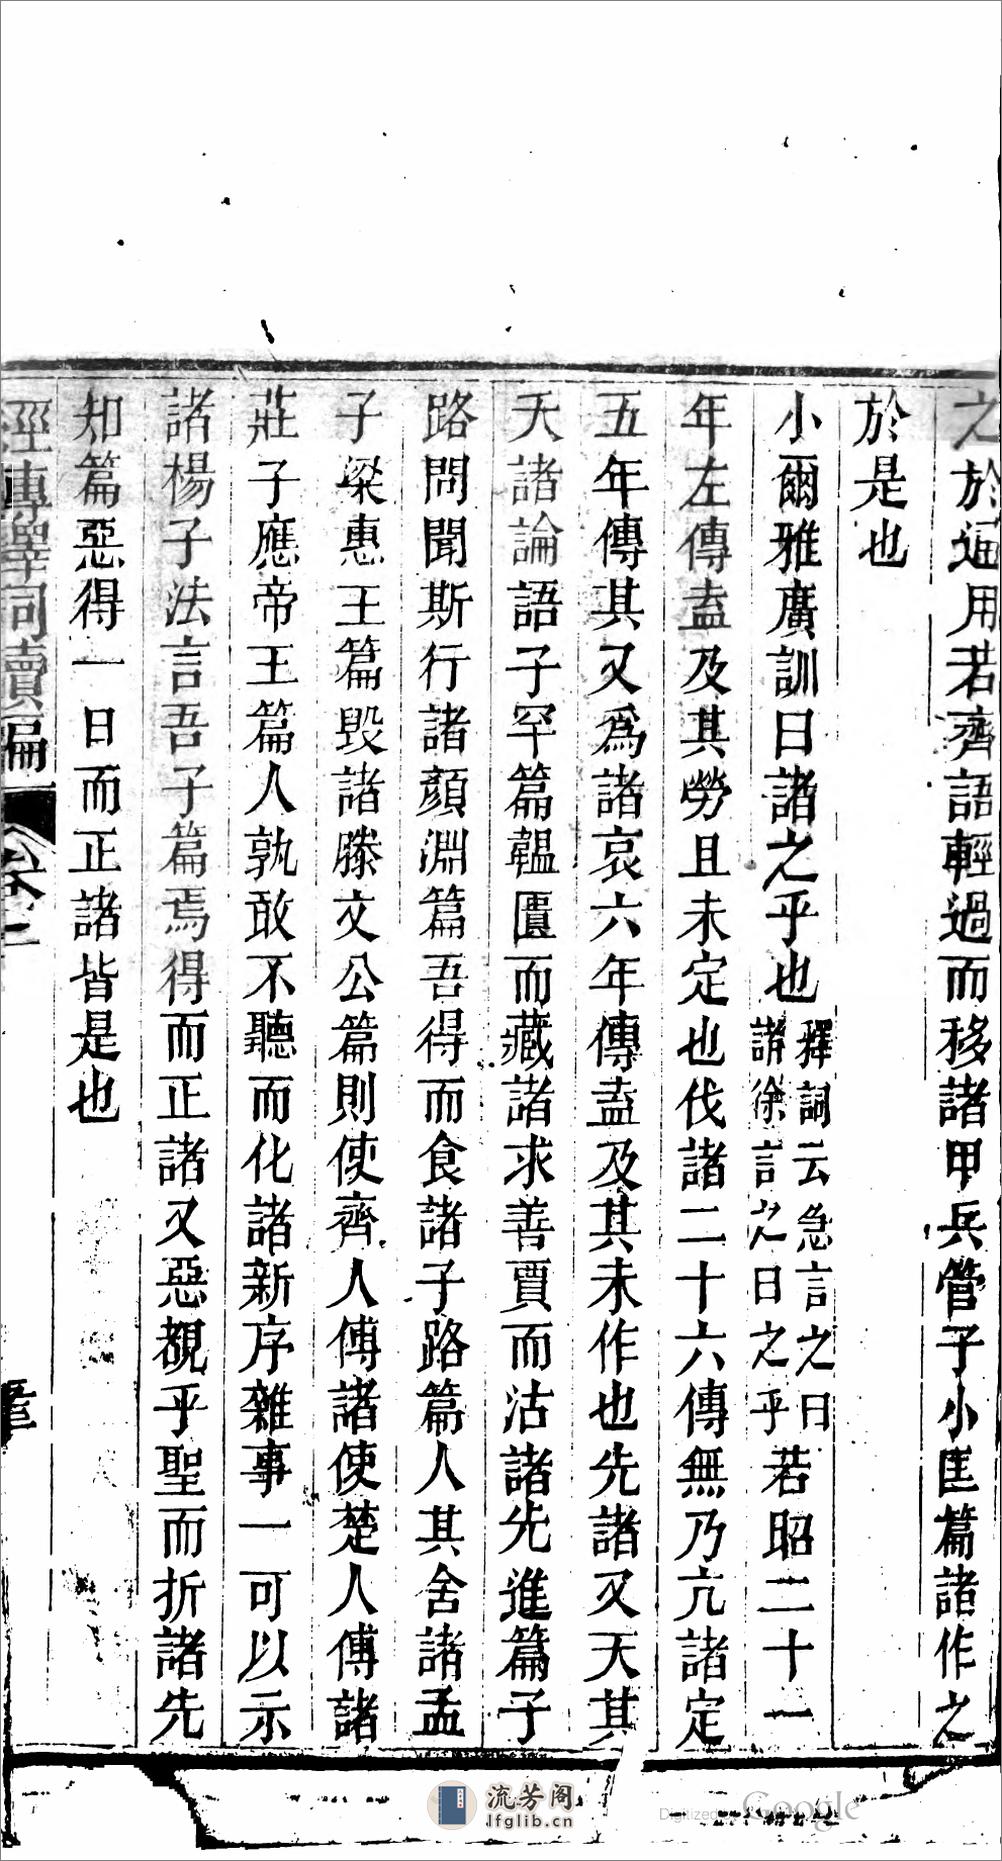 之於通用若齊語輕過而移諸甲兵管子小匡篇諸作之
於是也
小爾雅廣訓曰諸之乎也釋詞云急言之曰諸徐言之曰之乎若昭二十一
年左傳盍及其勞且未定也伐諸二十六傳無乃亢諸定
五年傳其又為諸哀六年傳盍及其未作也先諸又天其
夭諸論語子罕篇韞匱而藏諸求善賈而沽諸先進篇子
路問聞斯行諸顏淵篇吾得而食諸子路篇人其舍諸孟
子梁惠王篇毀諸滕文公篇則使齊人傅諸使楚人傅諸
莊子應帝王篇人孰敢不聽而化諸新序雜事一可以示
諸楊子法言吾子篇焉得而正諸又惡覩乎聖而折諸先
知篇惡得一日而正諸皆是也
經傳釋詞續編
流芳阁
lfglib.cn
Digitized by Google